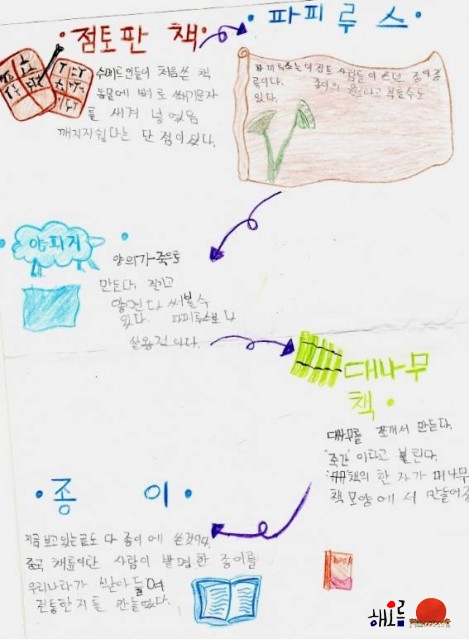 점토판 책
수메르인들이 처음쓴 책
동물에 뼈로 쐐기문자
를 새겨 넣었음
깨지지쉽다는 단점이있다.
파피루스
파피루스는 이집트 사람들이 쓰던 종이종
류이다. 종이의 라고 할수도
있다.
양피지
양의가죽으로
만든다. 질기고
앞뒤 다 써질수
있다. 파피루스보다
대나무
책
대나무를 쪼개서 만든다.
'죽간' 이라고 불린다.
책의 한자가 대나무
책 모양에서 만들어
종이
지금 보고있는글도 다 종이에 쓴것이다.
중국 채륜이란 사람이 발명한 종이를
우리나라가 받아들여
전통한지를 만들었다.
해오름